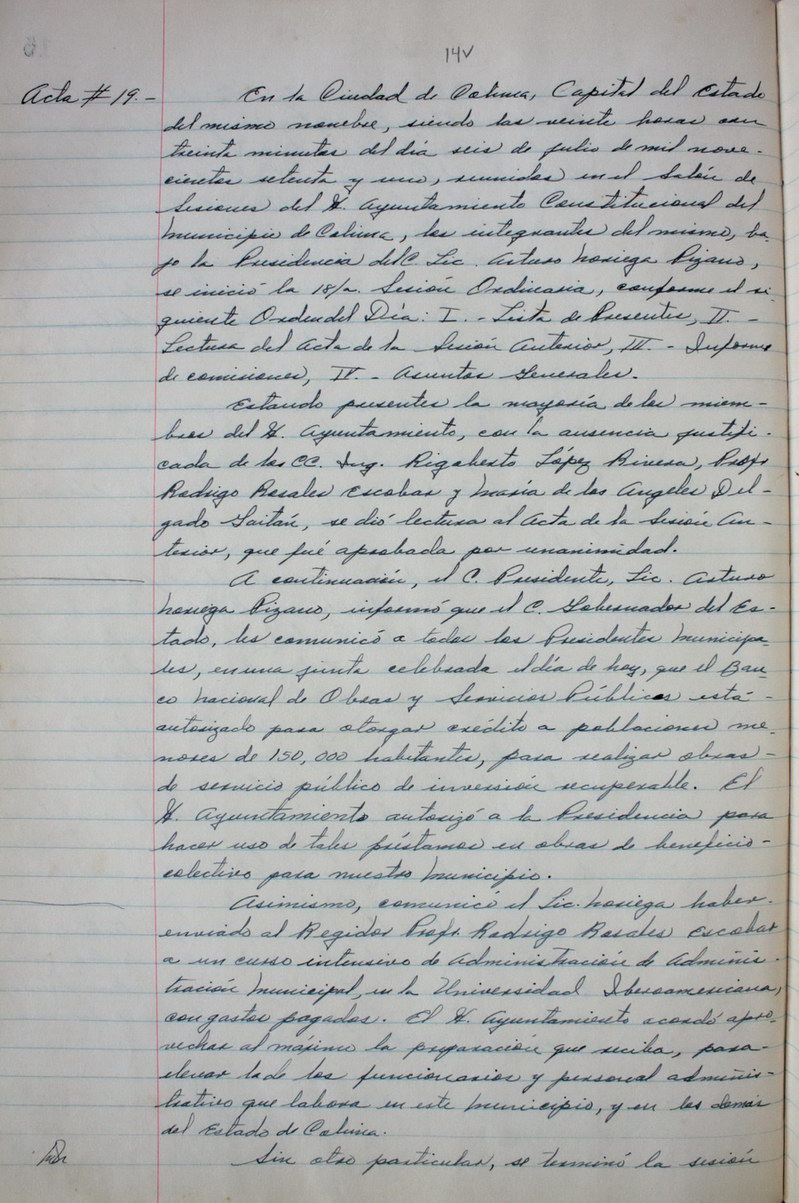 14v
Acta # 19.- En la Ciudad de Colima, Capital del Estado
del mismo nombre, siendo las veinte horas con
treinta minutos del día seis de julio de mil nove-
cientos setenta y uno, reunidos en el Salón de
Sesiones del H. Ayuntamiento Constitucional del
Municipio de Colima, los integrantes del mismo, ba-
jo la Presidencia del C. Lic. Arturo Noriega Pizano,
se inició la 18/a. Sesión Ordinaria, conforme el si-
guiente Orden del Día: I.- Lista de Presentes, II.-
Lectura del Acta de la Sesión Anterior, III.- Informe
de comisiones, IV.- Asuntos Generales.
Estando presentes la mayoría de los miem-
bros del H. Ayuntamiento, con la ausencia justifi-
cada de los CC. Ing. Rigoberto López Rivera, Profr
Rodrigo Rosales Escobar y María de los Angeles Del-
gado Gaitán, se dió lectura al Acta de la Sesión An-
terior, que fué aprobada por unanimidad.
A continuación, el C. Presidente, Lic. Arturo
Noriega Pizano, informó que el C. Gobernador del Es-
tado, les comunicó a todos los Presidentes Municipa-
les, en una junta celebrada el día de hoy, que el Ban-
co Nacional de Obras y Servicios Públicos está-
autorizado para otorgar crédito a poblaciones me-
nores de 150,000 habitantes, para realizar obras-
de servicio público de inversión recuperable. El
H. Ayuntamiento autorizó a la Presidencia para
hacer uso de tales préstamos en obras de beneficio-
colectivo para nuestro Municipio.
Asimismo, comunicó el Lic. Noriega haber-
enviado al Regidor Profr. Rodrigo Rosales Escobar
a un curso intensivo de Administración de Adminis-
tración Municipal, en la Universidad Iberoamericana,
con gastos pagados. El H. Ayuntamiento acordó apro-
vechar al máximo la preparación que reciba, para-
elevar la de los funcionarios y personal adminis-
trativo que labora en este Municipio, y en los demás
del Estado de Colima.
Sin otro particular, se terminó la sesión